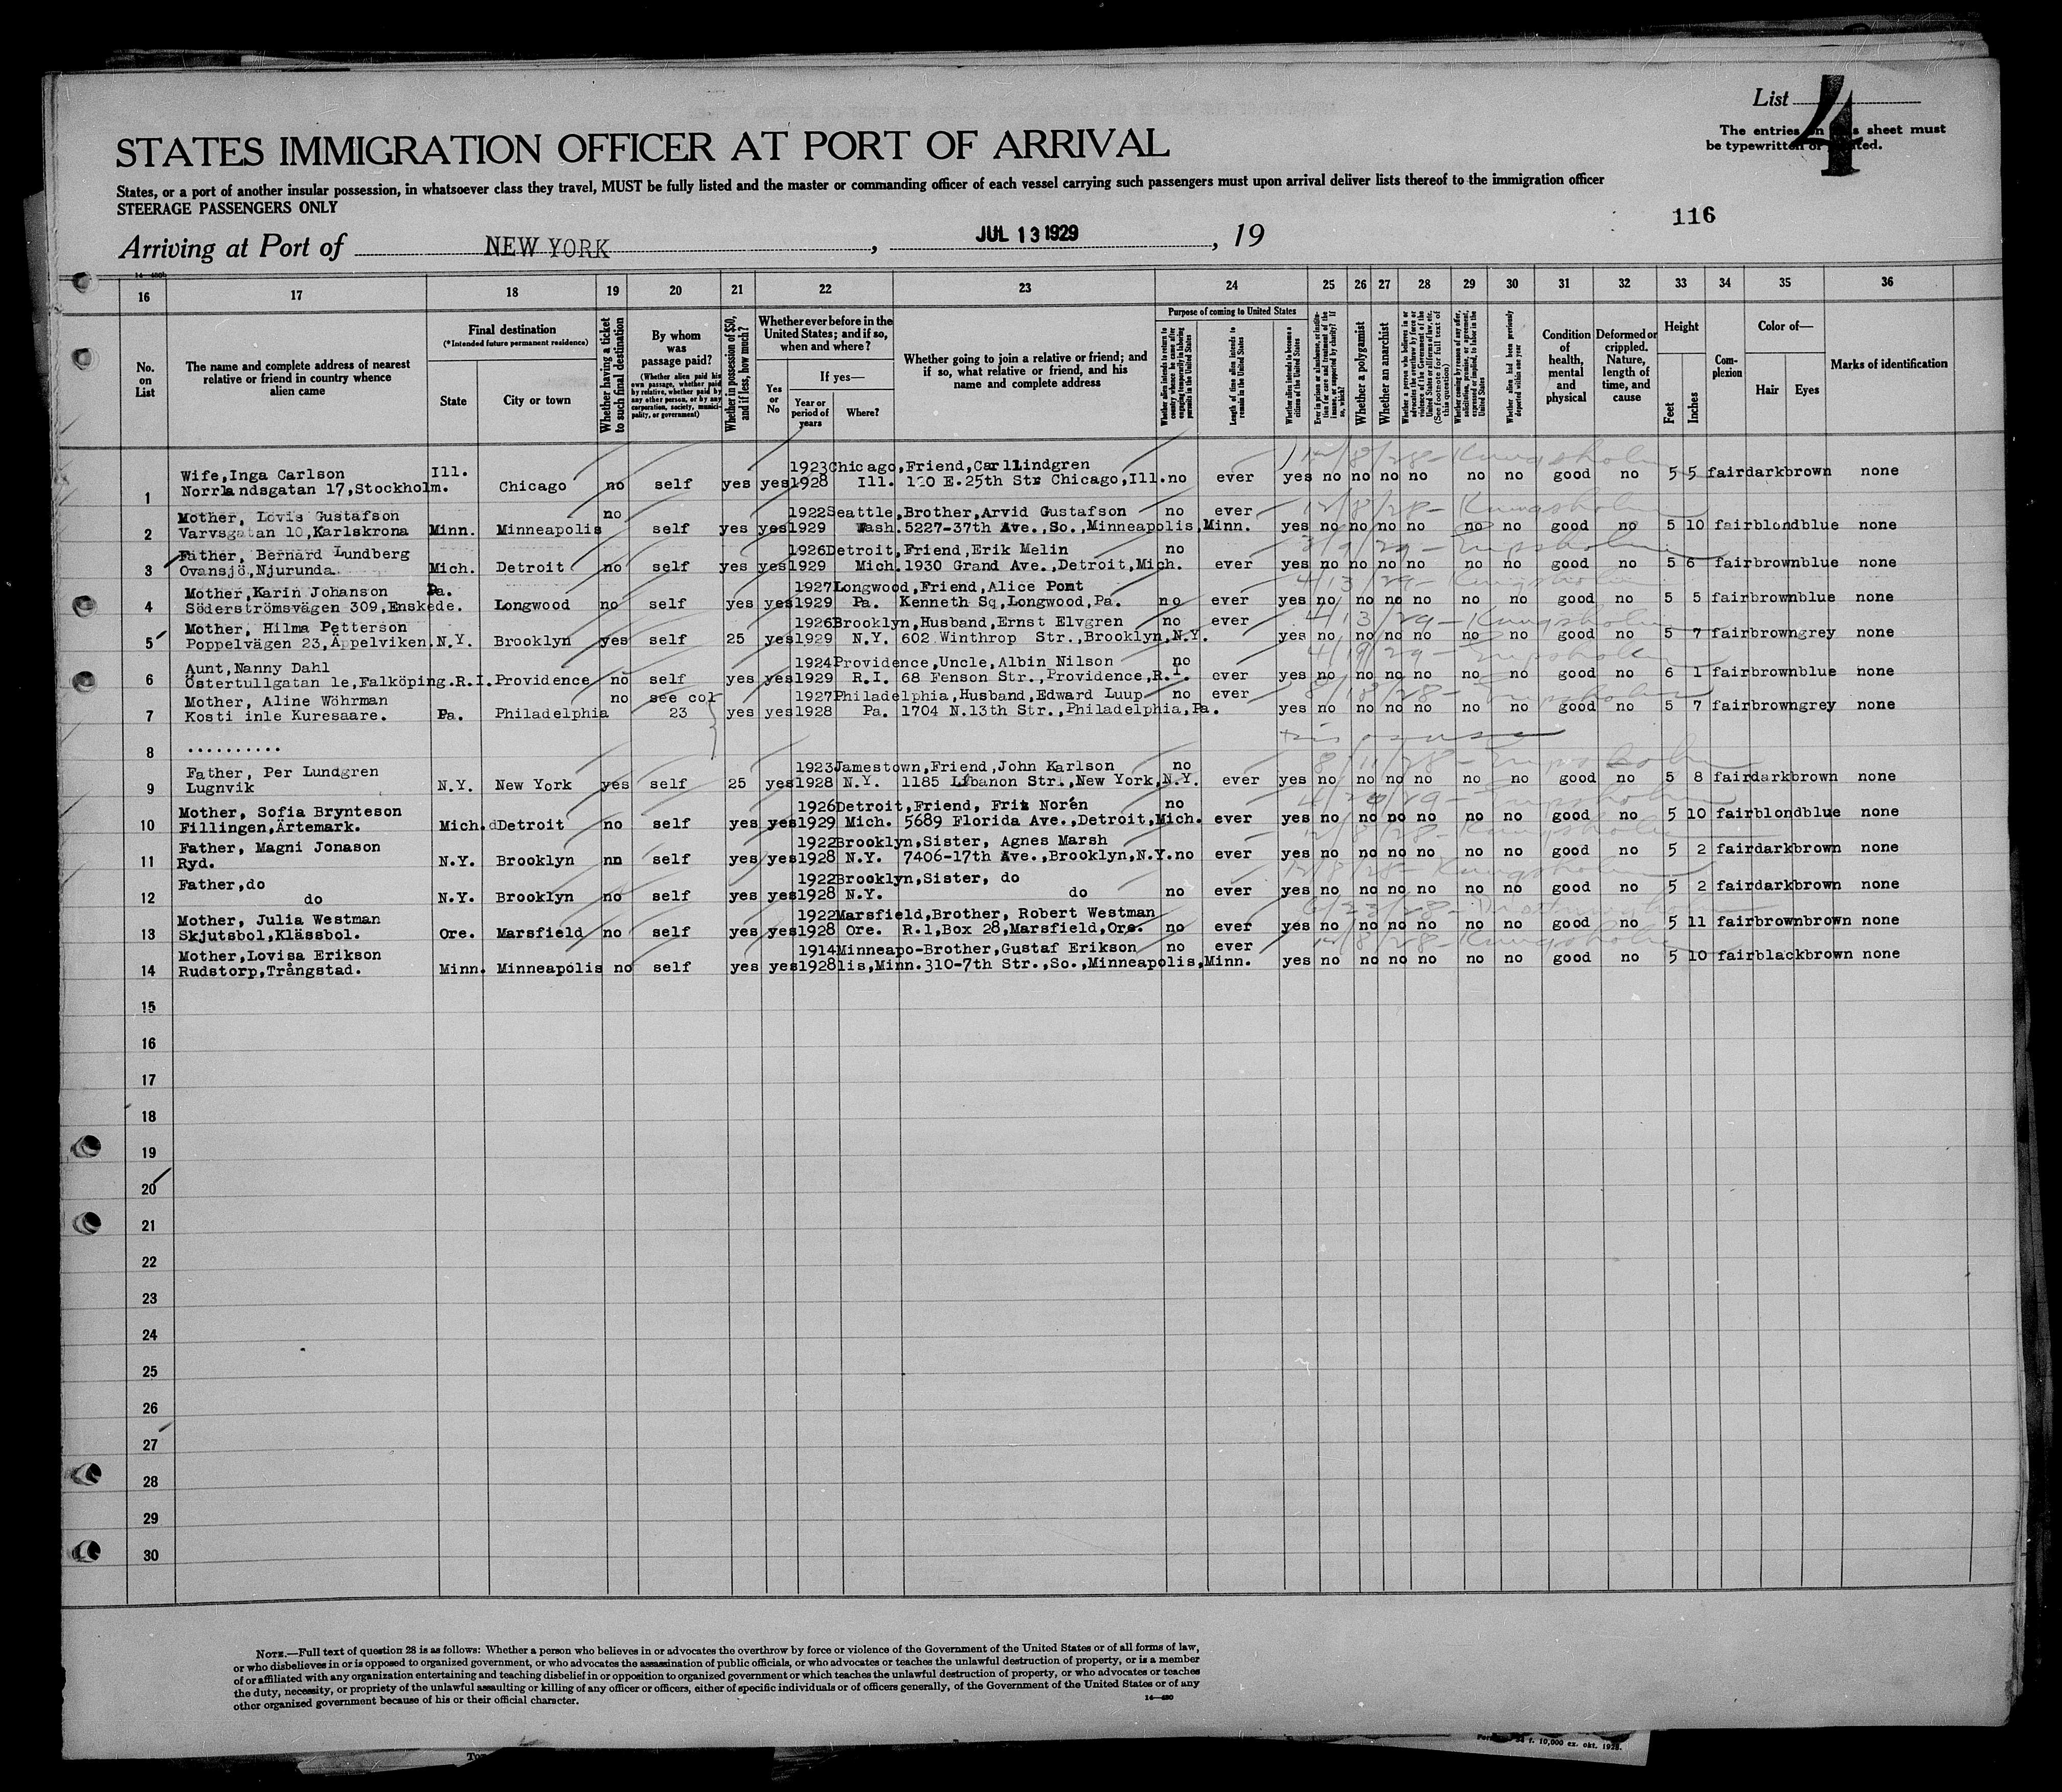 List
4
The entries sheet must
be typewritten or
STATES IMMIGRATION OFFICER AT PORT OF ARRIVAL
States, or a port of another insular possession, in whatsoever class they travel, MUST be fully listed and the master or commanding officer of each vessel carrying such passengers must upon arrival deliver lists thereof to the immigration officer
STEERAGE PASSENGERS ONLY
116
Arriving at Port of NEW YORK, JUL 13 1929, 19
16 17 18 19 20 21 22 23 24 25 26 27 28 29 30 31 32 33 34 35 36
No. on List
The name and complete address of nearest relative or friend in country whence alien came
Final destination
(*Intended future permanent residence)
State
City or town
Whether having a ticket to such final destination
By whom was passage paid?
(Whether alien paid his own passage, whether paid by relative, whether paid by any other person, or by any corporation, society, municipality, or government)
Whether in possession of $50, and if less, how much?
Whether ever before in the United States; and if so, when and where?
Yes or No
If yes—
Year or period of years
Where?
Whether going to join a relative or friend; and if so, what relative or friend, and his name and complete address
Purpose of coming to United States
Length of time alien intends to remain in the United States
Whether alien intends to become a citizen of the United States
Whether a polygamist
Whether an anarchist
Whether alien had been previously deported within one year
Condition of health, mental and physical
Deformed or crippled. Nature, length of time, and cause
Height
Feet
Inches
Complexion
Color of—
Hair
Eyes
Marks of identification
Wife,Inga Carlson Ill. 1923Chicago,Friend,CarlLindgren
1 Norrlandsgatan 17,Stockholm. Chicago no self yes yes1928 Ill. 120 E.25th Str Chicago,Ill.no ever yes no no no no no no good no 5 5 fairdarkbrown none
12/8/28- Kungsholm
Mother, Lovis Gustafson no 1922Seattle,Brother,Arvid Gustafson no ever
2 Varvsgatan 10,Karlskrona Minn. Minneapolis self yes yes1929 Wash.5227-37th Ave.,So.,Minneapolis,Minn. yes no no no no no no good no 5 10 fairblondblue none
12/8/28- Kungsholm
Father, Bernard Lundberg 1926Detroit,Friend,Erik Melin no
3 Ovansjö,Njurunda. Mich. Detroit no self yes yes1929 Mich.1930 Grand Ave.,Detroit,Mich. ever yes no no no no no no good no 5 6 fairbrownblue none
3/9/29- Gripsholm
Mother,Karin Johanson Pa. 1927Longwood,Friend,Alice Pont
4 Söderströmsvägen 309,Enskede. Longwood no self yes yes1929 Pa. Kenneth Sq,Longwood,Pa. no ever yes no no no no no no good no 5 5 fairbrownblue none
4/13/29- Kungsholm
Mother, Hilma Petterson 1926Brooklyn,Husband,Ernst Elvgren no ever
5 Poppelvägen 23,Äppelviken.N.Y. Brooklyn yes self 25 yes1929 N.Y. 602 Winthrop Str.,Brooklyn,N.Y. yes no no no no no no good no 5 7 fairbrowngrey none
4/13/29- Kungsholm
Aunt,Nanny Dahl 1924Providence,Uncle,Albin Nilson no
6 Östertullgatan 1e,Falköping.R.I.Providence no self yes yes1929 R.I. 68 Fenson Str.,Providence,R.I. ever yes no no no no no no good no 6 1 fairbrownblue none
4/19/29- Gripsholm
Mother, Aline Wöhrman no see col 1927Philadelphia,Husband,Edward Luup no ever
7 Kosti inle Kuresaare. Pa. Philadelphia 23 yes yes1928 Pa. 1704 N.13th Str.,Philadelphia,Pa. yes no no no no no no good no 5 7 fairbrowngrey none
8/18/28- Gripsholm
8 ..........
Father, Per Lundgren 1923Jamestown,Friend,John Karlson no
9 Lugnvik N.Y. New York yes self 25 yes1928 N.Y. 1185 Libanon Str.,New York,N.Y. ever yes no no no no no no good no 5 8 fairdarkbrown none
8/11/28- Gripsholm
Mother, Sofia Brynteson 1926Detroit,Friend, Fritz Norén no
10 Fillingen,Ärtemark. Mich.dDetroit no self yes yes1929 Mich. 5689 Florida Ave.,Detroit,Mich. ever yes no no no no no no good no 5 10 fairblondblue none
Father, Magni Jonason 1922Brooklyn,Sister, Agnes Marsh
11 Ryd. N.Y. Brooklyn nn self yes yes1928 N.Y. 7406-17th Ave.,Brooklyn,N.Y.no ever yes no no no no no no good no 5 2 fairdarkbrown none
12/8/28- Kungsholm
Father,do 1922Brooklyn,Sister, do
12 do N.Y. Brooklyn no self yes yes1928 N.Y. do no ever yes no no no no no no good no 5 2 fairdarkbrown none
12/8/28- Kungsholm
Mother, Julia Westman 1922Marsfield,Brother, Robert Westman
13 Skjutsbol,Klässbol. Ore. Marsfield no self yes yes1928 Ore. R.1,Box 28,Marsfield,Ore. no ever yes no no no no no no good no 5 11 fairbrownbrown none
6/23/28- Drottningholm
Mother,Lovisa Erikson 1914Minneapo-Brother,Gustaf Erikson no ever
14 Rudstorp,Trångstad. Minn. Minneapolis no self yes yes1928lis,Minn.310-7th Str.,So.,Minneapolis,Minn. yes no no no no no no good no 5 10 fairblackbrown none
12/8/28- Kungsholm
15
16
17
18
19
20
21
22
23
24
25
26
27
28
29
30
NOTE.—Full text of question 28 is as follows: Whether a person who believes in or advocates the overthrow by force or violence of the Government of the United States or of all forms of law,
or who disbelieves in or is opposed to organized government, or who advocates the assassination of public officials, or who advocates or teaches the unlawful destruction of property, or is a member
of or affiliated with any organization entertaining and teaching disbelief in or opposition to organized government or which teaches the unlawful destruction of property, or who advocates or teaches
the duty, necessity, or propriety of the unlawful assaulting or killing of any officer or officers, either of specific individuals or of officers generally, of the Government of the United States or of any
other organized government because of his or their official character.
14—480